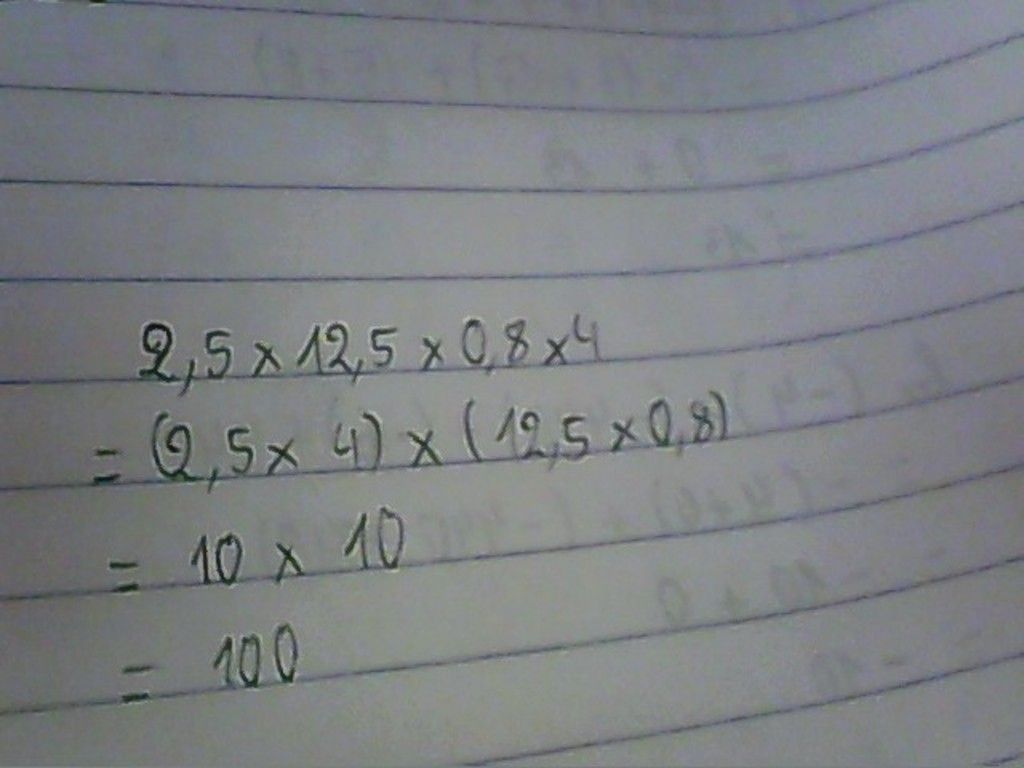 2,5 × 12,5 × 0,8 × 4
= (2,5 × 4) × (12,5 × 0,8)
= 10 × 10
= 100